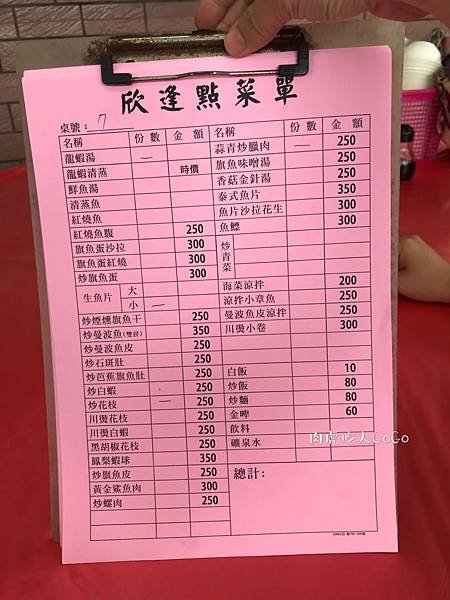 欣逢點菜單
桌號：7
名稱 份數 金額
龍蝦湯 —
龍蝦清蒸 時價
鮮魚湯
清蒸魚
紅燒魚
紅燒魚腹 250
旗魚蛋沙拉 300
旗魚蛋紅燒 300
炒旗魚蛋 300
生魚片 大
小 —
炒煙燻旗魚干 250
炒曼波魚(雙拼) 350
炒曼波魚皮 250
炒石斑肚 250
炒芭蕉旗魚肚 250
炒白蝦 250
炒花枝 — 250
川燙花枝 250
川燙白蝦 250
黑胡椒花枝 250
鳳梨蝦球 350
炒旗魚皮 250
黃金鯊魚肉 300
炒螺肉 250
名稱 份數 金額
蒜青炒臘肉 — 250
旗魚味噌湯 250
香菇金針湯 250
泰式魚片 350
魚片沙拉花生 300
魚鰾 300
炒青菜
海菜涼拌 200
涼拌小章魚 250
曼波魚皮涼拌 250
川燙小卷 300
白飯 10
炒飯 80
炒麵 80
金啤 60
飲料
礦泉水
總計:
肉魯吃人CoCo